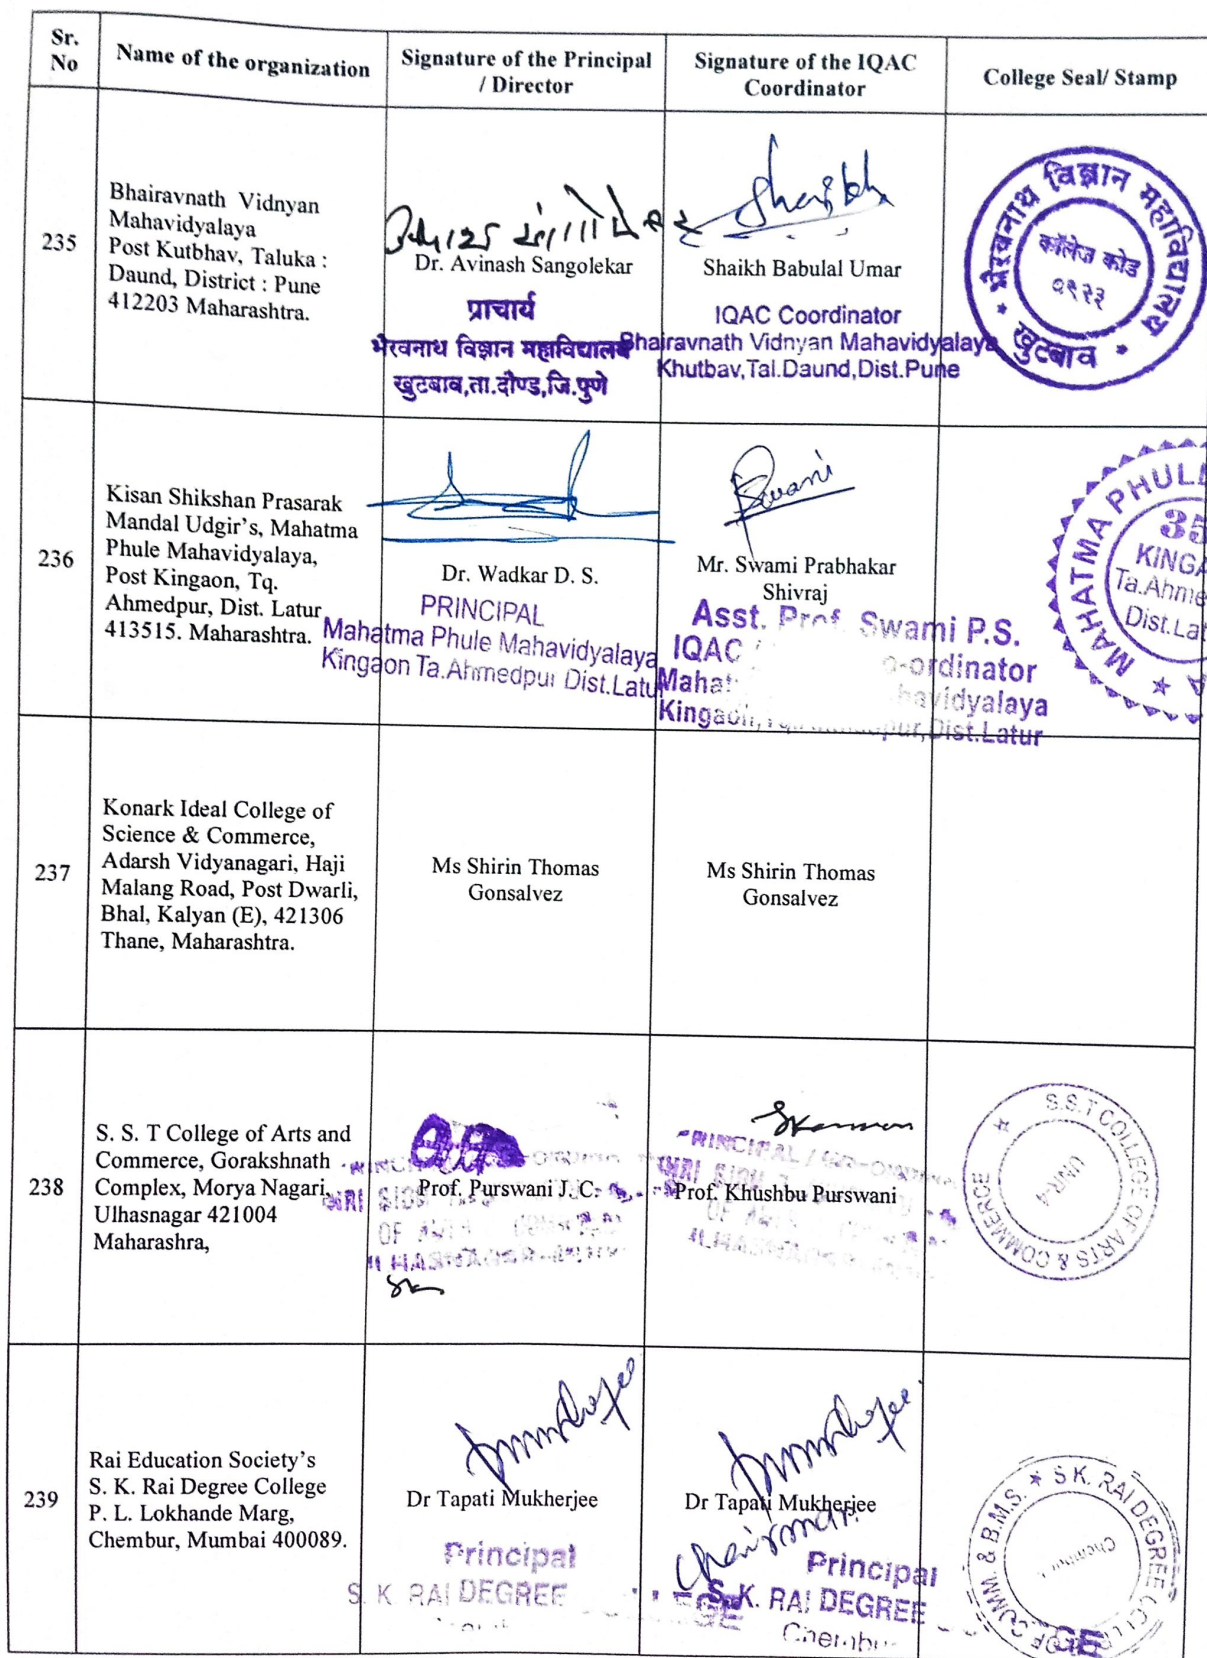 Sr.
No
Name of the organization
Signature of the Principal
/ Director
Signature of the IQAC
Coordinator
College Seal/ Stamp
235
Bhairavnath Vidnyan
Mahavidyalaya
Post Kutbhav, Taluka :
Daund, District : Pune
412203 Maharashtra.
Dr. Avinash Sangolekar
प्राचार्य
भैरवनाथ विज्ञान महाविद्यालय
खुटबाव,ता.दौण्ड,जि.पुणे
Shaikh
Shaikh Babulal Umar
IQAC Coordinator
Bhairavnath Vidnyan Mahavidyalaya
Khutbav,Tal.Daund,Dist.Pune
भैरवनाथ विज्ञान महाविद्यालय
कॉलेज कोड
०९२३
* खुटबाव *
236
Kisan Shikshan Prasarak
Mandal Udgir's, Mahatma
Phule Mahavidyalaya,
Post Kingaon, Tq.
Ahmedpur, Dist. Latur
413515. Maharashtra.
Dr. Wadkar D. S.
PRINCIPAL
Mahatma Phule Mahavidyalaya
Kingaon Ta.Ahmedpur Dist.Latu
Swani
Mr. Swami Prabhakar
Shivraj
Asst. Prof. Swami P.S.
IQAC o-ordinator
Mahat havidyalaya
Kingaon, pur,Dist.Latur
MAHATMA PHUL
35
KINGA
Ta.Ahme
Dist.Lat
237
Konark Ideal College of
Science & Commerce,
Adarsh Vidyanagari, Haji
Malang Road, Post Dwarli,
Bhal, Kalyan (E), 421306
Thane, Maharashtra.
Ms Shirin Thomas
Gonsalvez
Ms Shirin Thomas
Gonsalvez
238
S. S. T College of Arts and
Commerce, Gorakshnath
Complex, Morya Nagari,
Ulhasnagar 421004
Maharashra,
Prof. Purswani J. C.
PRINCIPAL /
Prof. Khushbu Purswani
S.S.T COLLEGE OF ARTS & COMMERCE
239
Rai Education Society's
S. K. Rai Degree College
P. L. Lokhande Marg,
Chembur, Mumbai 400089.
Dr Tapati Mukherjee
Principal
S. K. RAI DEGREE
Dr Tapati Mukherjee
Chairman
Principal
S. K. RAI DEGREE
Chembu
* S K. RAI DEGREE
OF COMM. & B.M.S.
GE